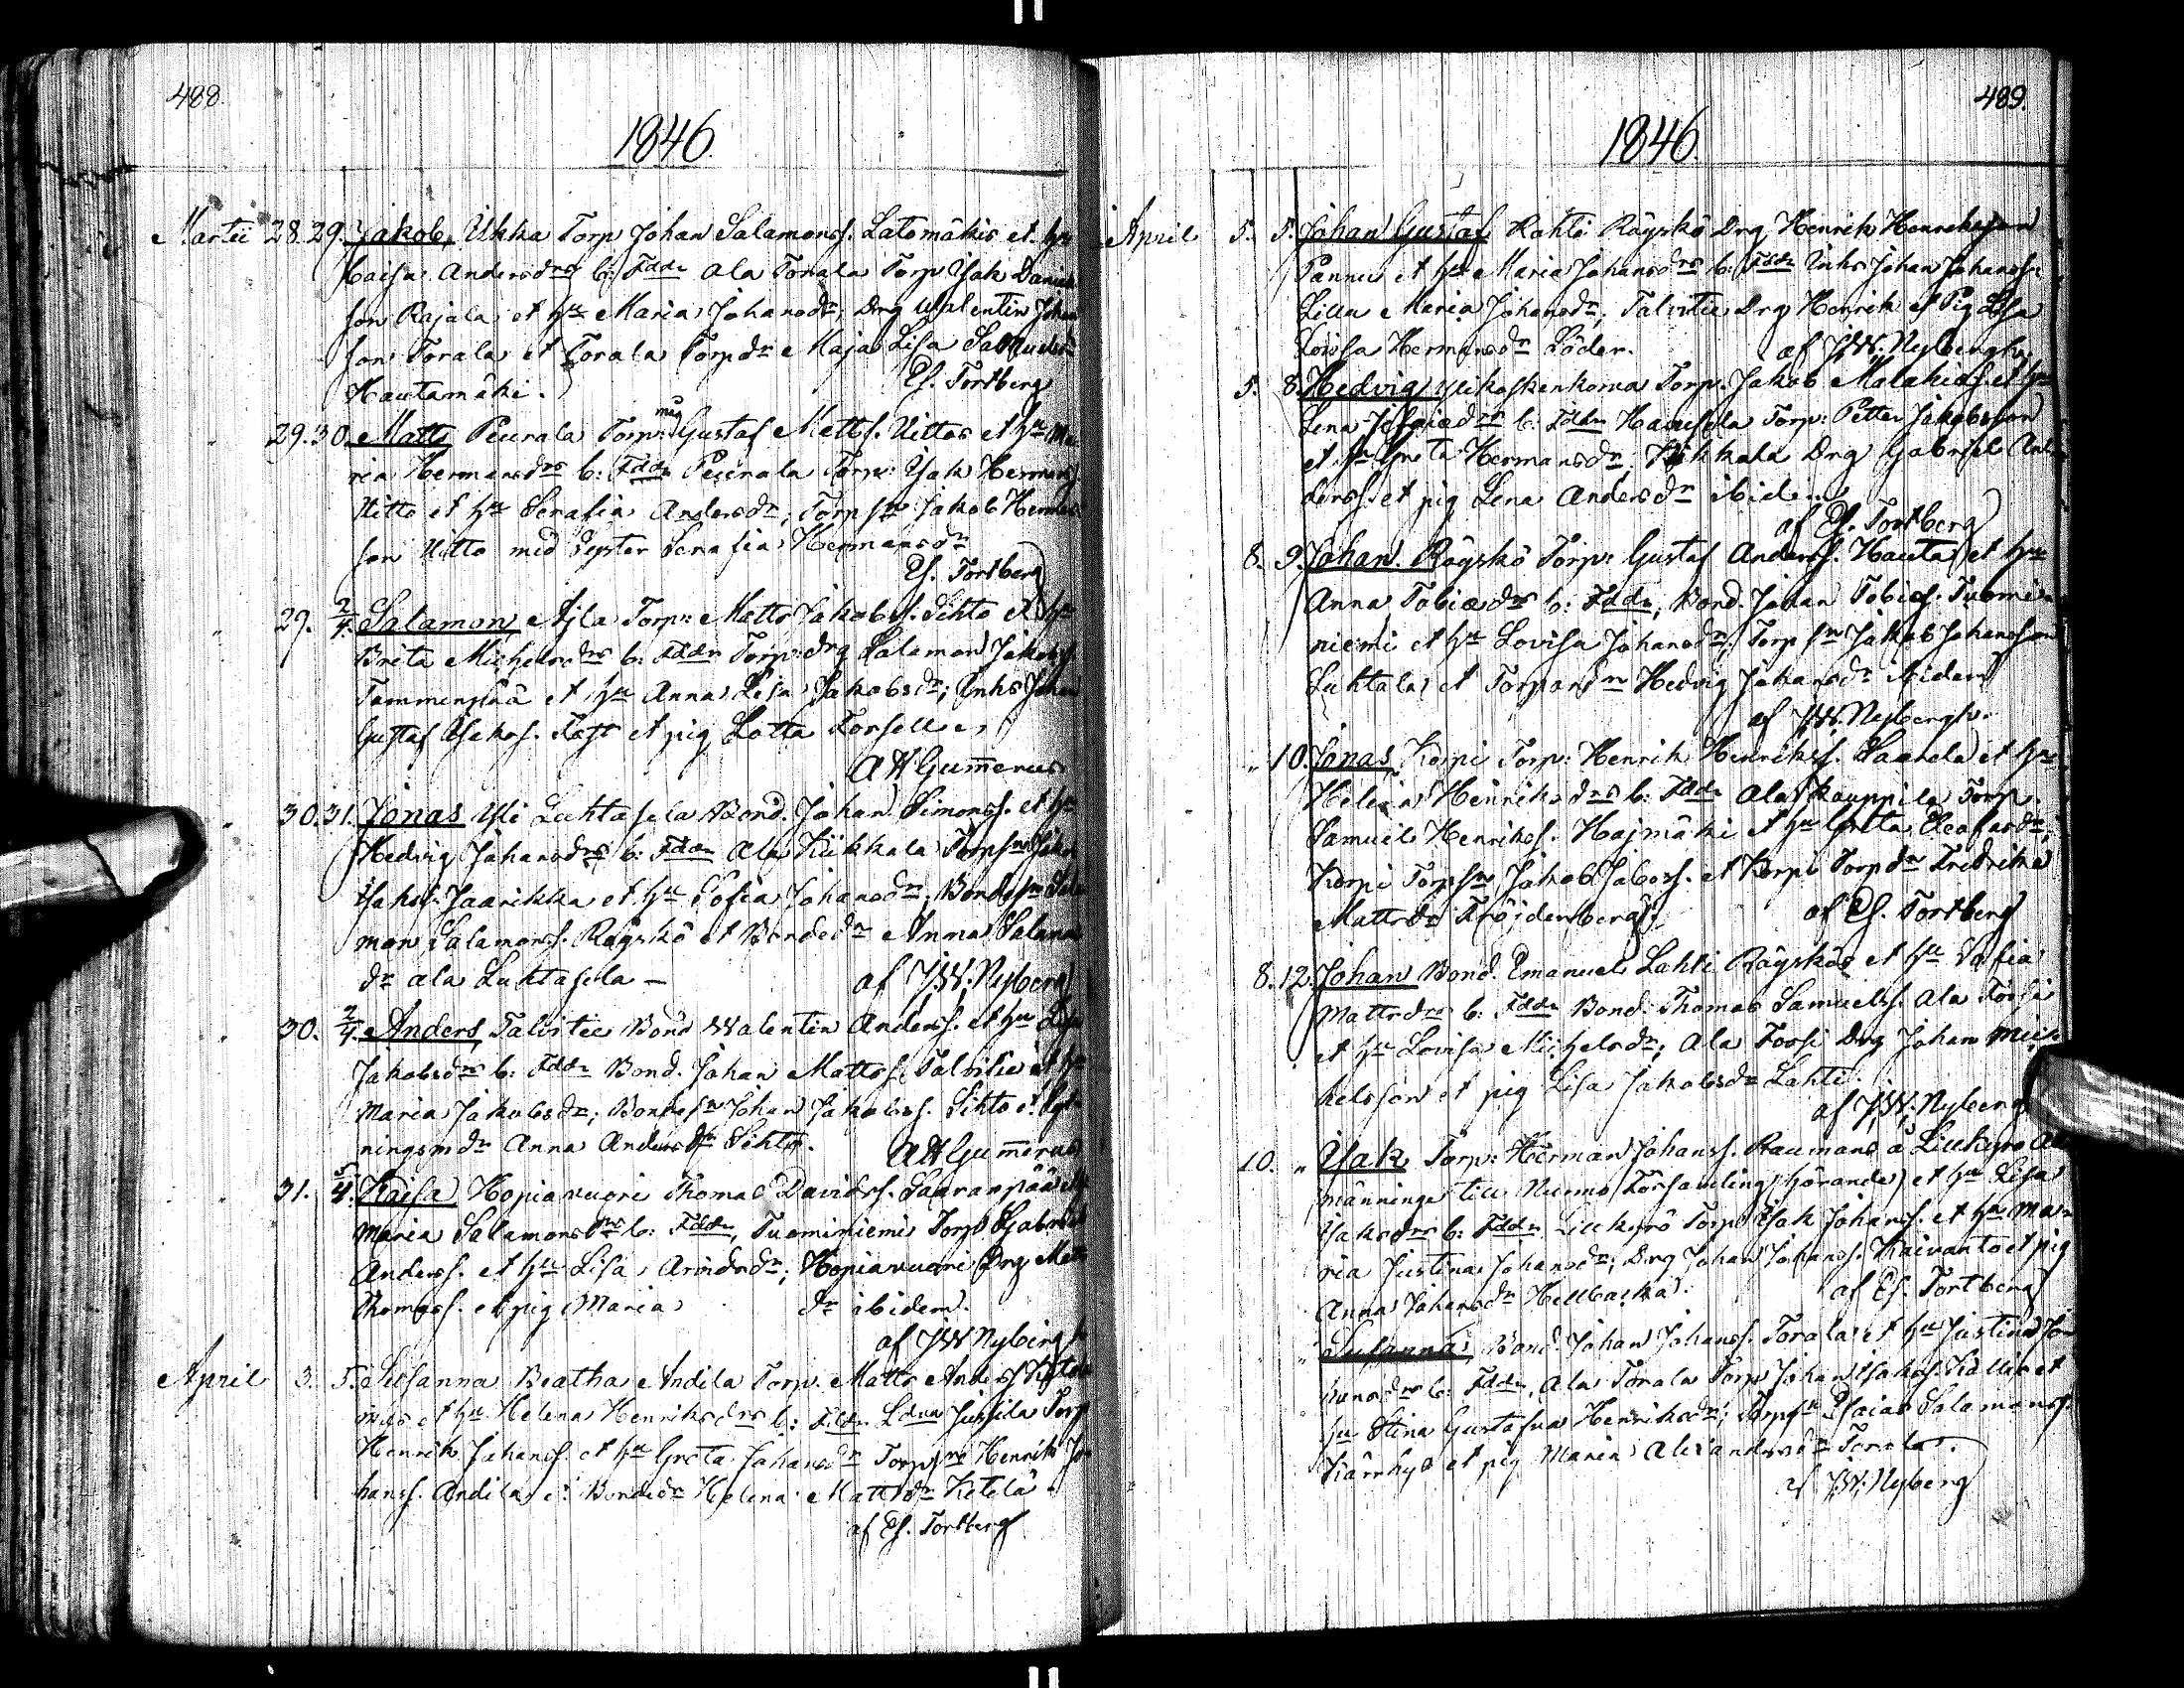 488.
1846.
Martii 28. 29. Jakob, Ukka Torp Johan Salamonss. Latomäkis et hu
Caisa Andersdrs b: Fddr Ala Torala Torp Isak Daniels
son Rajala et hu Maria Johansdr; Drg Walentin Johan
son Torala et Torala Torpdr Maja Lisa Samuelsdr
Hautamäki. Es. Tortberg
29. 30. Matts Peurala Torp: Gustaf Mattss. Uittos et hu Ma
ria Hermansdrs b: Fddr Peurala Torp: Isak Hermans
Uitto et hu Serafia Andersdr; Torpsn Jakob Herman
son Uitto med syster Serafia Hermansdr
Es. Tortberg
29. 2/4. Salamon, Äjla Torp: Matts Jakobss. Sihto et hu
Brita Michelsdrs b: Fddr Torp: drg Salamon Jakobss.
Tammenpää et hu Anna Lisa Jakobsdr; Inhs Johan
Gustaf Isakss. Fast et pig Lotta Forsell
AH Gum̄erus
30. 31. Jonas Yli Luhtasela Bond. Johan Simonss. et hu
Hedvig Johansdrs b: Fddr Ala Kiikkala Torpsn Johan
Isakss. Jaarikka et hu Sofia Johansdr; Bondesn Sala
mon Salamonss. Röyskö et Bondedr Anna Salamons
dr ala Luhtasela — af J.W. Nyberg
30. 2/4. Anders, Talvitie Bond Walentin Anderss. et hu Lisa
Jakobsdrs b: Fddr Bond. Johan Mattss. Talvitie et hu
Maria Jakobsdr; Bondesn Johan Jakobss. Sihto et
ningsmdr Anna Andersdr Sihto. AH Gum̄erus
31. 5/4. Kaisa Hopiavuori Thomas Davidss. Saaranpää et
Maria Salamonsdrs b: Fddr, Tuominiemi Torp Gabriel
Anderss. et hu Lisa Arvidsdr; Hopiavuori Drg Matts
Thomass. et pig Maria dr ibidem.
af J.W. Nyberg
April 3. 5. Susanna Beatha Andila Torp. Matts Anderss.
et hu Helena Henriksdrs b: Fddr Jussila Torp
Henrik Johanss. et hu Greta Johansdr Torpsn Henrik Jo
hanss. Andila et Bondedr Helena Mattsdr Ketelä
af Es. Tortberg
489.
1846.
April 5. 5. Johan Gustaf Rahko Röyskö Drg Henrik Henriksson
Pannu et hu Maria Johansdrs b: Fddr Inhs Johan Johanss.
Lillu Maria Johansdr; Talvitie Drg Henrik et Pig Lisa
Lovisa Hermansdr Söder. af J.W. Nyberg
5. 8. Hedvig Ylikoskenkorva Torp. Jakob Malakiass. et hu
Lena Esaiædrs b: Fddr Haukela Torp: Petter Jakobsson
et hu Greta Hermansdr; Kiikkala Drg Gabriel An
derss. et pig Lena Andersdr ibidem
af Es. Tortberg
8. 9. Johan Röyskö Torp: Gustaf Anderss. Hauta et hu
Anna Tobiædrs b: Fddr, Bond. Johan Tobiæs. Tuomi
niemi et hu Lovisa Johansdr; Torpsn Jakob Johansson
Luhtala et Torparedr Hedvig Johansdr ibidem
af J.W. Nyberg
„ 10. Jonas, Korpi Torp: Henrik Henrikss. et hu
Helena Henriksdrs b: Fddr Ala Kauppila Torp.
Samuel Henrikss. Hajmäki et hu Greta Eleasardr;
Korpi Torpsn Jakob Jakobss. et Korpi Torpdr Fredrika
Mattsdr Fröjdenberg. af Es. Tortberg
8. 12. Johan Bond. Emanuel Lahti Röyskös et hu Sofia
Mattsdrs b: Fddr Bond: Thomas Samuelss. Ala Torsi
et hu Lovisa Michelsdr; Ala Torsi Drg Johan Mic
kelsson et pig Lisa Jakobsdr Lahti.
af J.W. Nyberg
10. „ Isak Torp: Herman Johanss. Raumans å Lillkyro All
männinge till Nurmo Församling hörande, et hu Lisa
Isaksdrs b: Fddr Lillkyro Torp Isak Johanss. et hu Ma
ria Justina Johansdr; Drg Johan Johanss. Kaivanto et pig
Anna Johansdr Hellbacka. af Es. Tortberg
„ „ Susanna, Bond. Johan Johanss. Torala et hu Justina Jo
hansdrs b: Fddr, Ala Torala Torp Johan Isakss. Kallio et
hu Stina Gustafva Henriksdr; Torpsn Esaias Salamonss.
Kärrhy et pig Maria Alexandersdr Torala.
af J.W. Nyberg